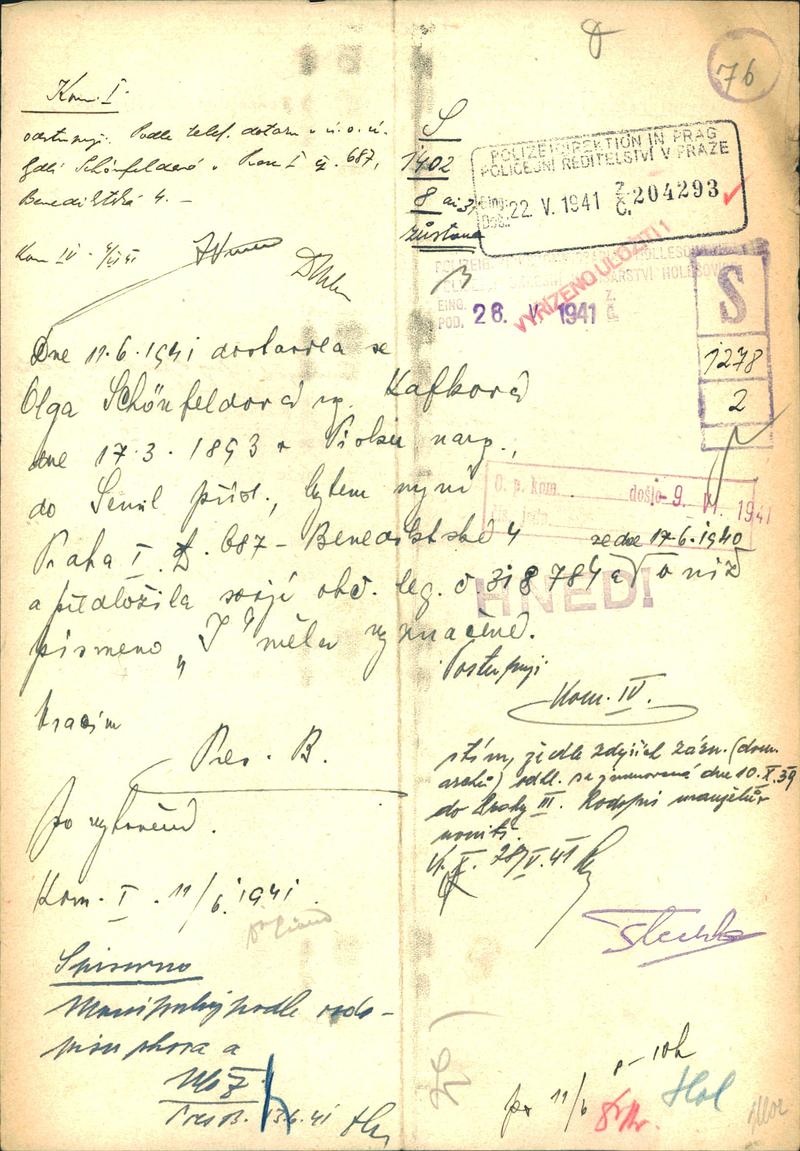 76
Kom. I.
odstupuji. Podle telef. dotazu
Schönfeldová Praha I čp. 687,
Benediktská 4. –
Kom IV
S
1402
8
zůstane
POLIZEIDIREKTION IN PRAG
POLICEJNÍ ŘEDITELSTVÍ V PRAZE
Eing.
Došlo: 22. V. 1941 Z. Č. 204293
VYŘÍZENO ULOŽITI!
EING.
POD. 28. V. 1941 Z. Č.
S
1278
2
Dne 11.6.1941 dostavila se
Olga Schönfeldová roz. Kafková
dne 17.3.1893 v nar.,
do Semil přísl., bytem nyní
Praha I. č. 687 – Benediktská 4
ze dne 17.6.1940
a předložila svoji obč. leg. č. 318784 v níž
písmeno „J“ měla vyznačené.
O. p. kom. došlo 9. VI. 1941
IHNED!
Vracím
Pres. B.
po vyřízení.
Kom. I. 11/6. 1941.
Postupuji
Kom. IV.
s tím, že dle zdejších zázn. (dom.
archů) odhl. se jmenovaná dne 10.X.39
do Prahy III. Rodopis manželův
není.
28/V.41
Spisovna
Manipuluj podle rodo-
pisu shora a
ulož
Pres B. 13.6.41
11/6
8–10h